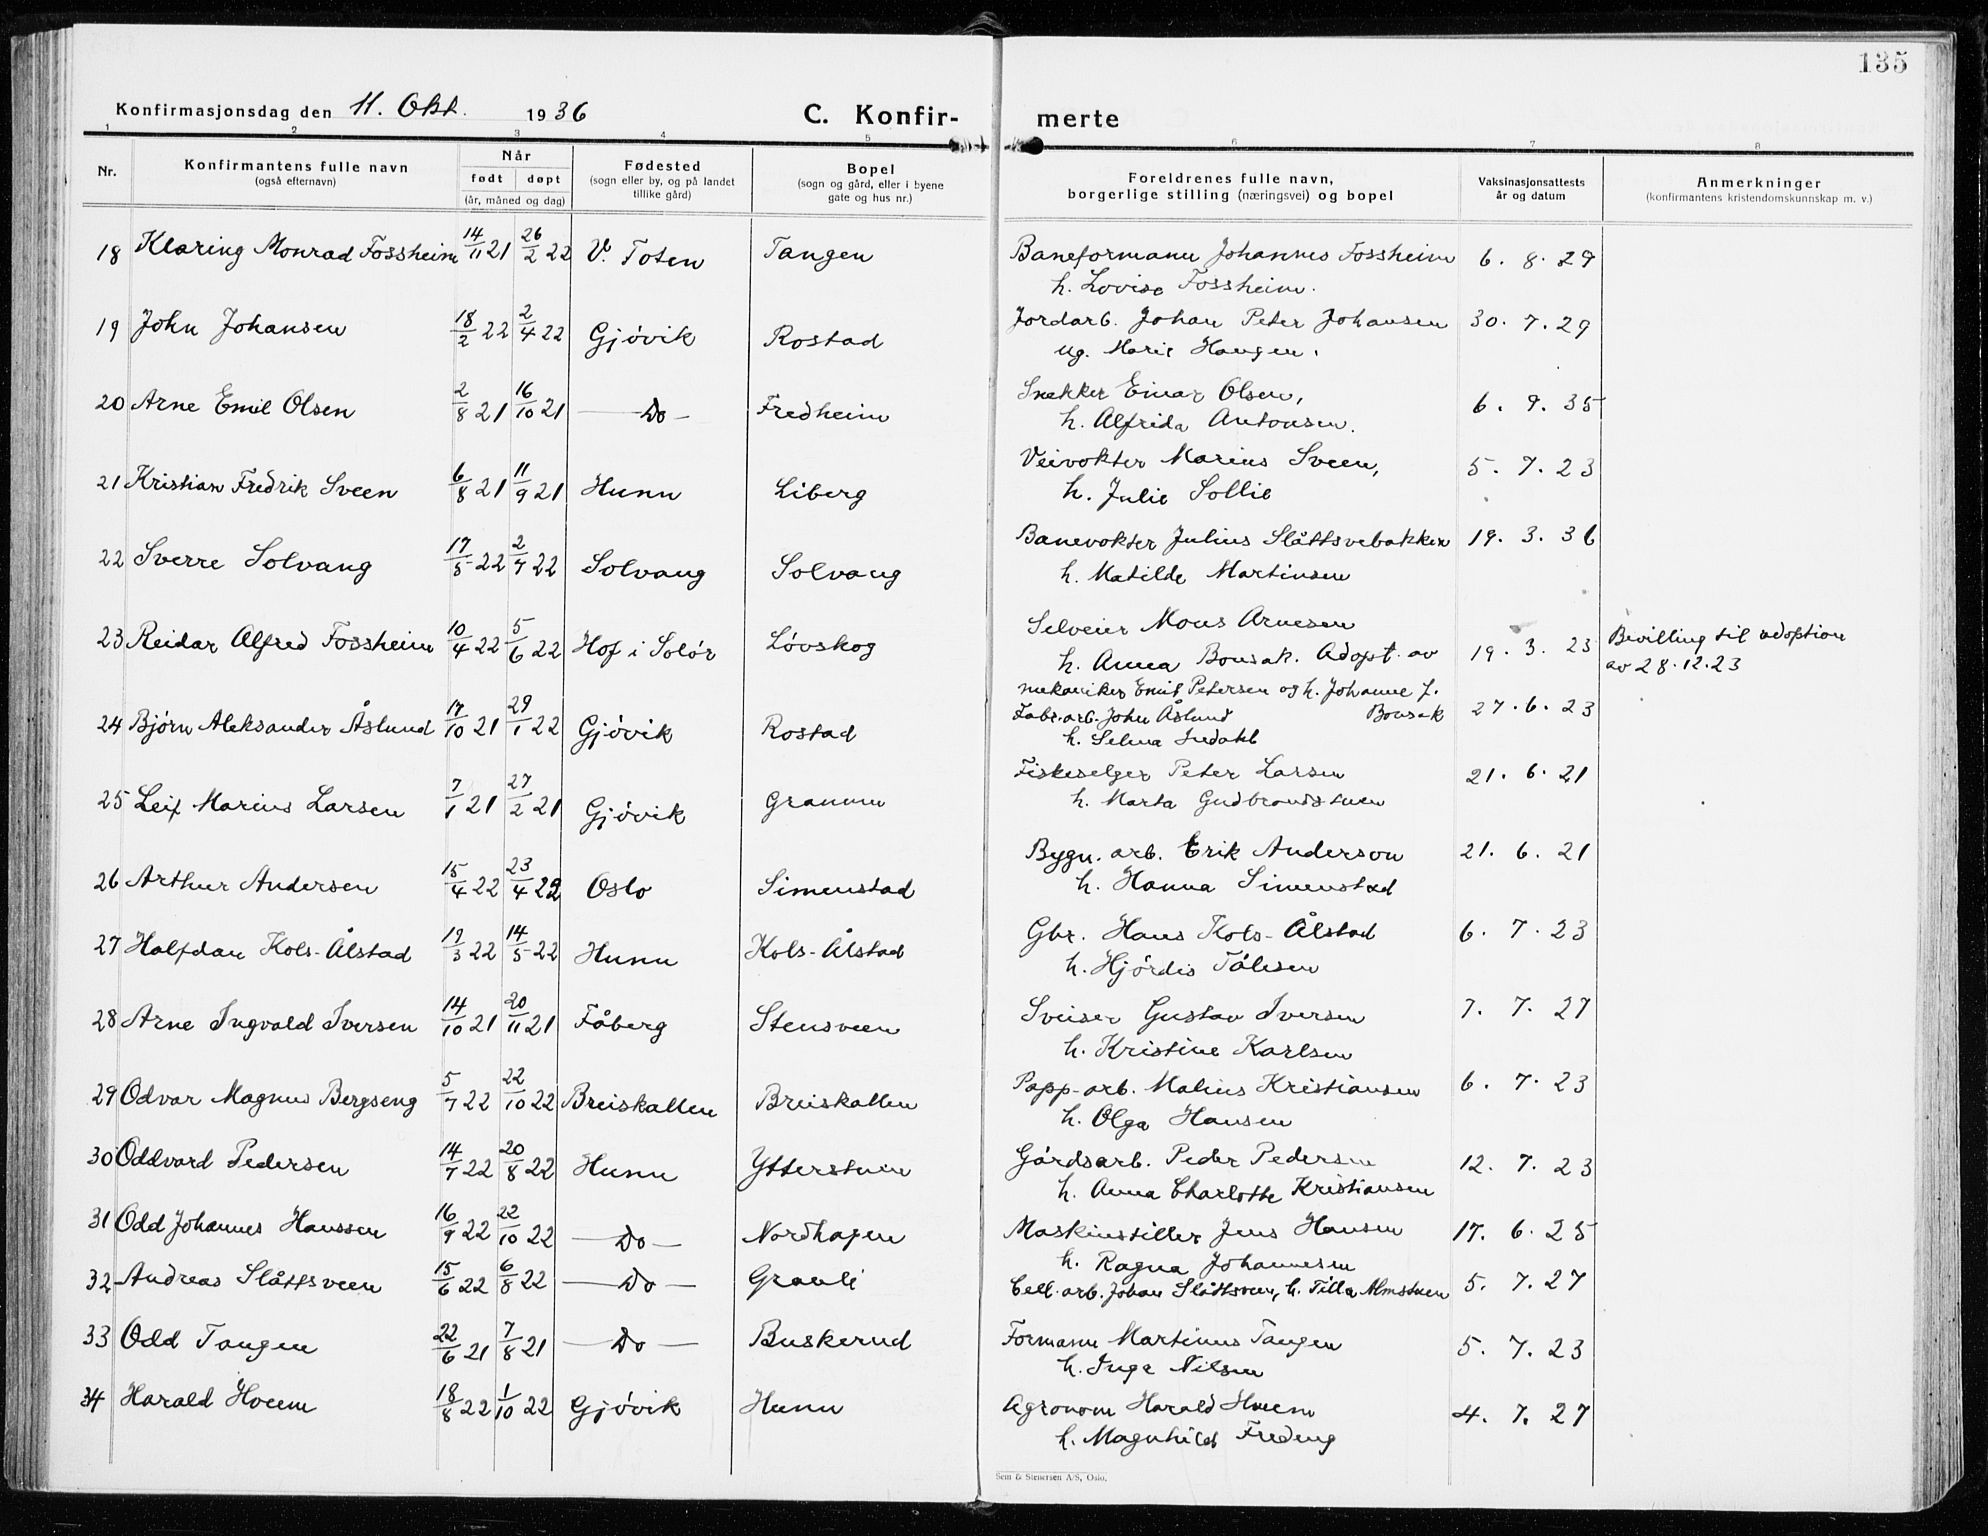 135
Konfirmasjonsdag den 11. Okt. 1936 C. Konfir- merte
1 2 3 4 5 6 7 8
Nr. Konfirmantens fulle navn (også efternavn) Når født døpt (år, måned og dag) Fødested (sogn eller by, og på landet tillike gård) Bopel (sogn og gård, eller i byene gate og hus nr.) Foreldrenes fulle navn, borgerlige stilling (næringsvei) og bopel Vaksinasjonsattests år og datum Anmerkninger (konfirmantens kristendomskunnskap m. v.)
18 Klaring Monrad Fossheim 14/11 21 26/2 22 V. Toten Tangen Baneformann Johannes Fossheim 6. 8. 29
h. Lovise Fossheim.
19 John Johansen 18/2 22 2/4 22 Gjövik Rostad Jordarb. Johan Peter Johansen 30. 7. 29
ug. Marie Haugen.
20 Arne Emil Olsen 2/8 21 16/10 21 — Do — Fredheim Snekker Einar Olsen, 6. 9. 35
h. Alfrida Antonsen.
21 Kristian Fredrik Sveen 6/8 21 11/9 21 Hunn Liberg Veivokter Marius Sveen, 5. 7. 23
h. Julie Sollie
22 Sverre Solvang 17/5 22 2/7 22 Solvang Solvang Banevokter Julius Slåttsvebakken 19. 3. 36
h. Matilde Martinsen
23 Reidar Alfred Fossheim 10/4 22 5/6 22 Hof i Solör Lövskog Selveier Mons Arnesen 19. 3. 23 Bevilling til adoption
h. Anna Bonsak. Adopt. av av 28.12.23
mekaniker Emil Petersen og h. Johanne J. Bonsak
24 Bjørn Aleksander Åslund 17/10 21 29/1 22 Gjövik Rostad Fabr.arb. John Åslund 27. 6. 23
h. Selma Indahl
25 Leif Marius Larsen 7/1 21 27/2 21 Gjövik Gramm Fiskeselger Peter Larsen 21. 6. 21
h. Marta Gudbrandstuen
26 Arthur Andersen 15/4 22 23/4 22 Oslo Simenstad Bygn. arb. Erik Anderson 21. 6. 21
h. Hanna Simenstad
27 Halfdan Kols-Ålstad 19/3 22 14/5 22 Hunn Kols-Ålstad Gbr. Hans Kols-Ålstad 6. 7. 23
h. Hjördis Tölesen
28 Arne Ingvald Iversen 14/10 21 20/11 21 Fåberg Stensveen Sveiser Gustav Iversen 7. 7. 27
h. Kristine Karlsen
29 Odvar Magnus Bergseng 5/7 22 22/10 22 Breiskallen Breiskallen Papp-arb. Malius Kristiansen 6. 7. 23
h. Olga Hansen
30 Oddvard Pedersen 14/7 22 20/8 22 Hunn Ytterstuen Gårdsarb. Peder Pedersen 12. 7. 23
h. Anna Charlotte Kristiansen
31 Odd Johannes Hanssen 16/9 22 22/10 22 — Do — Nordhagen Maskinstiller Jens Hansen 17. 6. 25
h. Ragna Johannesen
32 Andreas Slåttsveen 15/6 22 6/8 22 — Do — Grauli Cell. arb. Johan Slåttsveen, h. Tilla Almstuen 5. 7. 27
33 Odd Tangen 22/6 21 7/8 21 — Do — Buskerud Formann Martinus Tangen 5. 7. 23
h. Inga Nilsen
34 Harald Hveem 18/8 22 1/10 22 Gjövik Hunn Agronom Harald Hveem 4. 7. 27
h. Magnhild Fredeng
Sem & Stenersen A/S, Oslo.